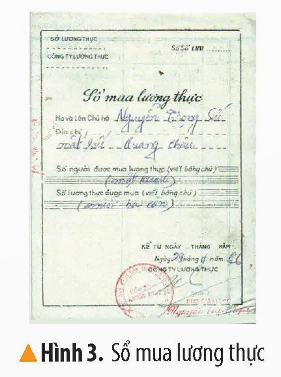 SỞ LƯƠNG THỰC
CÔNG TY LƯƠNG THỰC
Số Sổ LƯU
Sổ mua lương thực
Họ và tên Chủ hộ Nguyễn Trọng
Địa chỉ
quang châu
Số người được mua lương thực (viết bằng chữ)
(một người)
Số lương thực được mua (viết bằng chữ)
(mười ba cân)
KỂ TỪ NGÀY THÁNG NĂM
Ngày 29 tháng năm
CÔNG TY LƯƠNG THỰC
▲ Hình 3. Sổ mua lương thực